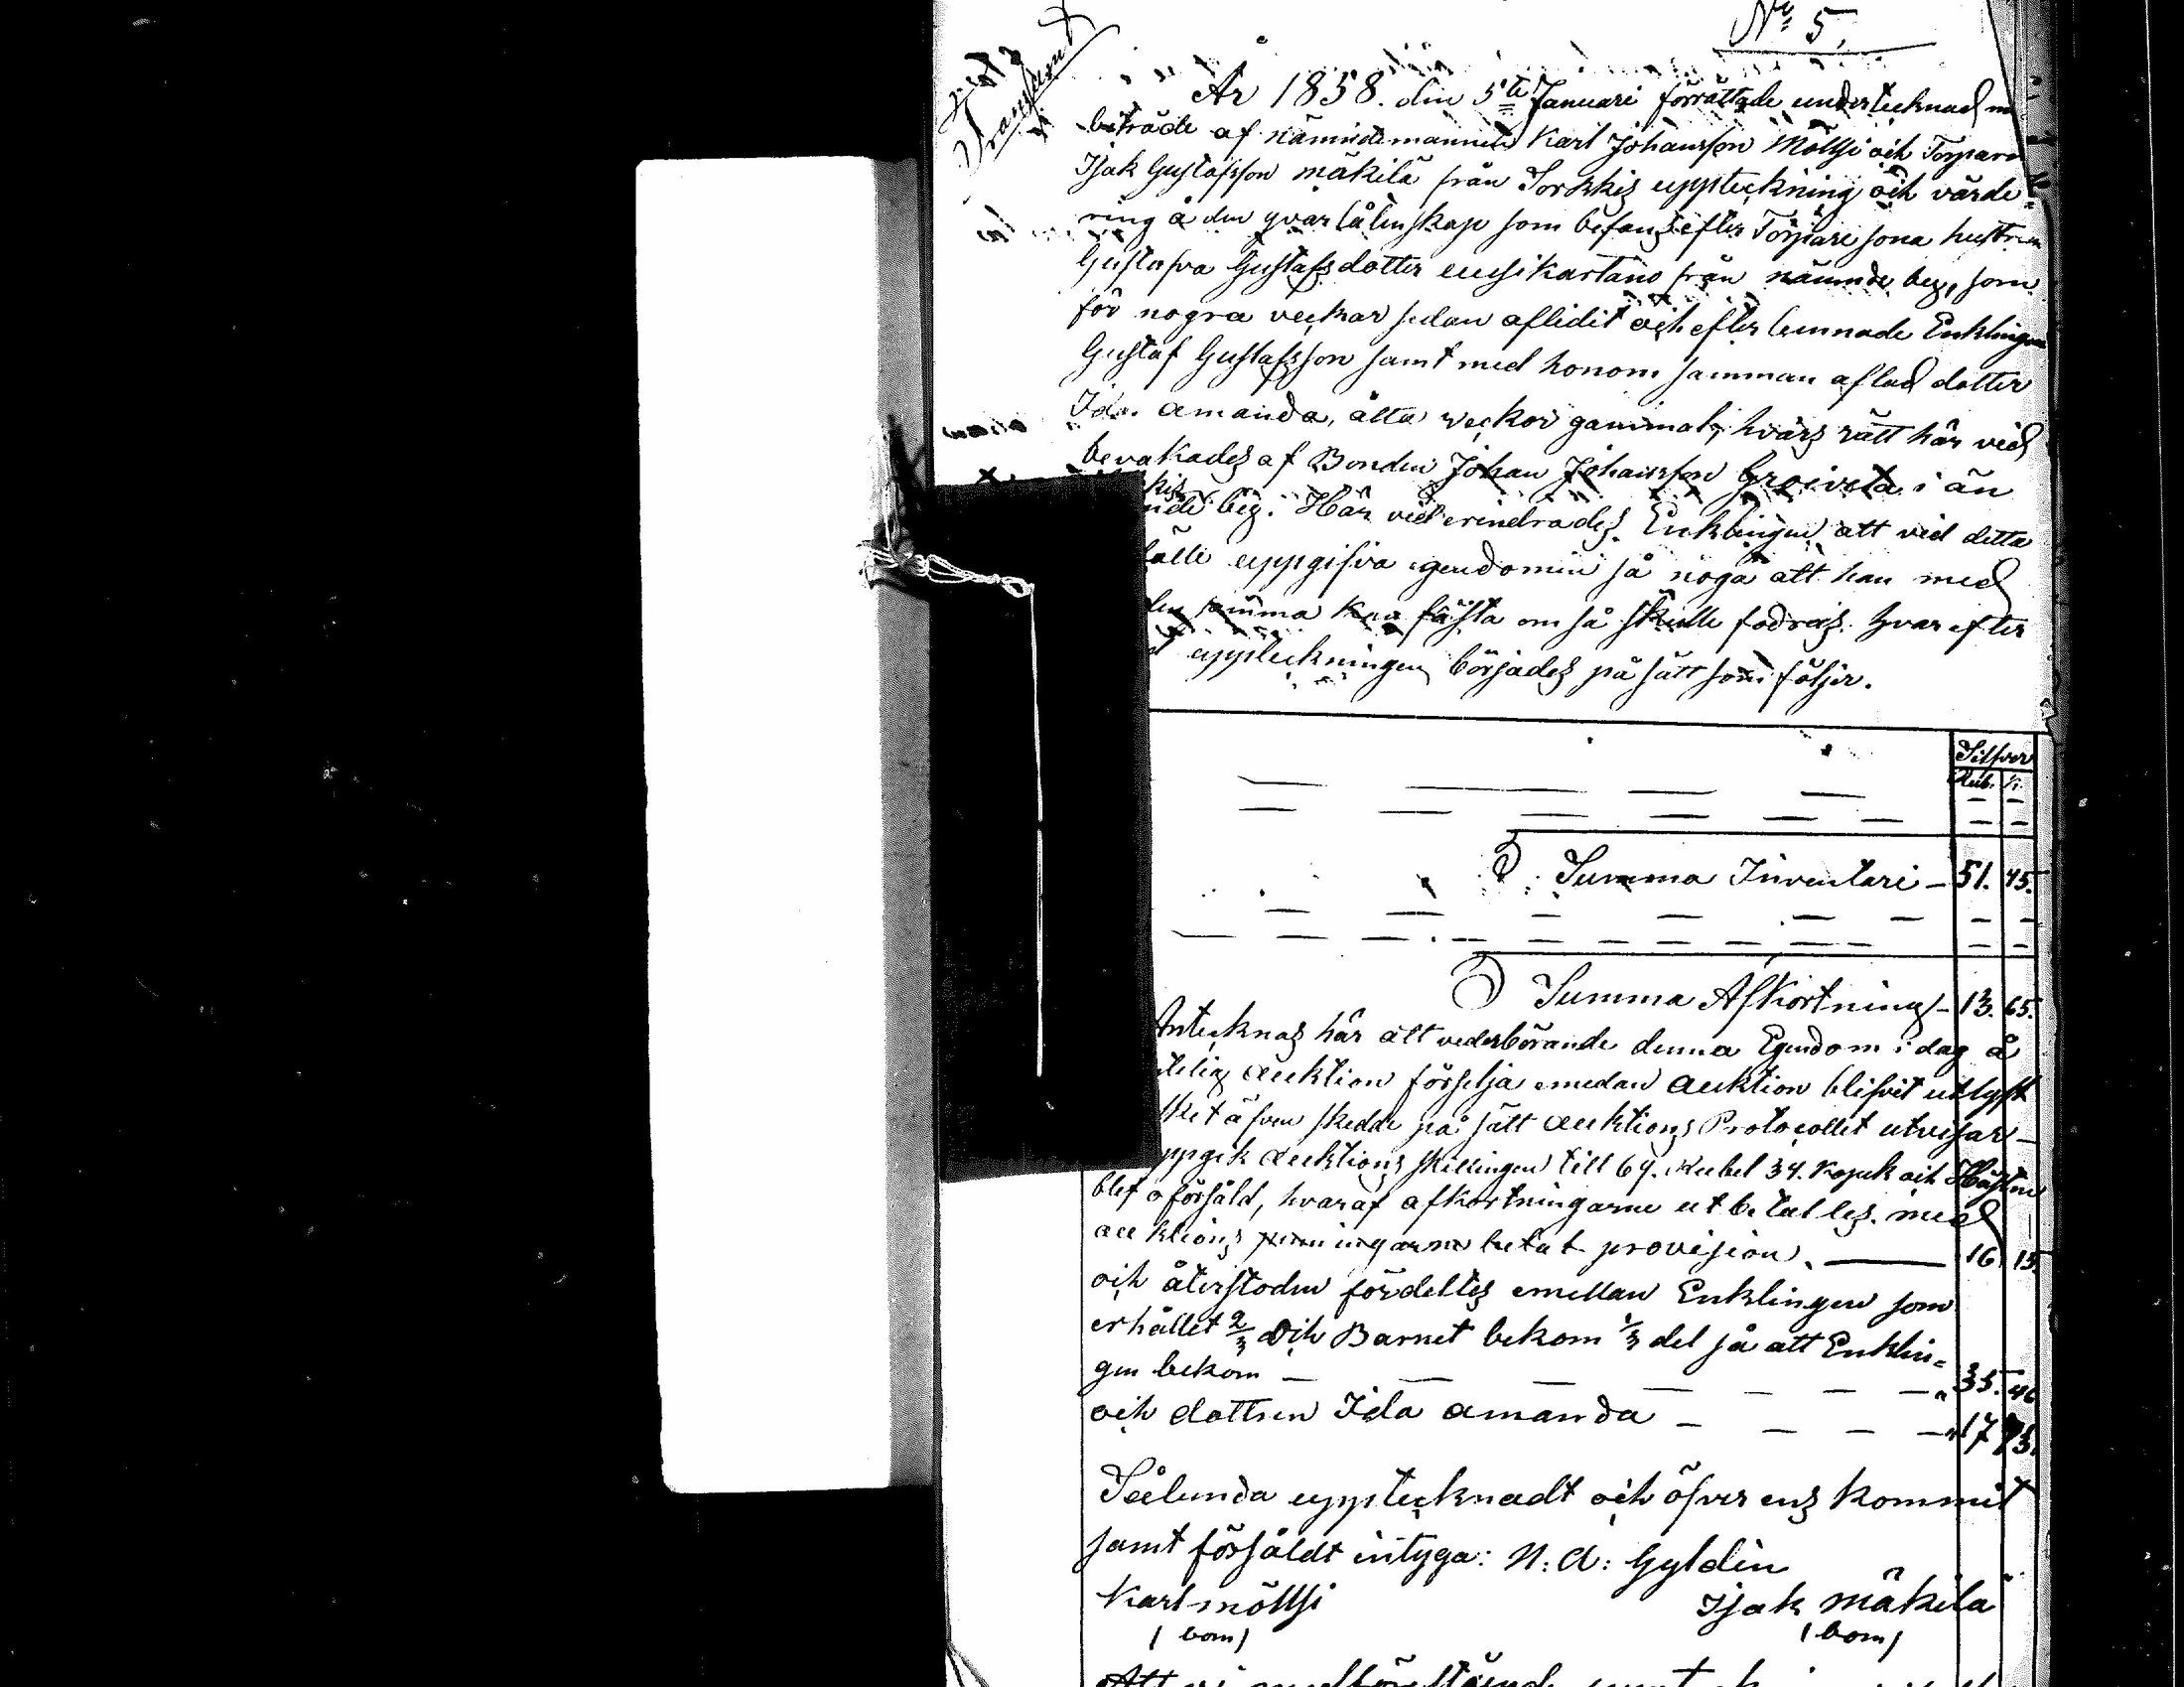 No 5.
År 1858. den 5te Januari förrättade undertecknad m
biträde af nämndemannen Karl Johansson Möllsi och Torparn
Isak Gustafsson mäkilä från Sorkkis uppteckning och värde=
ring å den qvarlåtenskap som befans efter Torpare sona hustrun
Gustafva Gustafsdotter uusikartano från nämnde by, som
för nogra veckar sedan aflidit och efter lemnade Enklingen
Gustaf Gustafsson samt med honom samman aflad dotter
Ida amanda, åtta veckor gammal, hvars rätt här ved
bevakades af Bonden Johan Johansson Greivola i än
kis
nde by. Här ved erindrades Enklingen att ved detta
älle uppgifva gendomen så noga att han med
den samma kan fästa om så skulle fodras. hvar efter
uppteckningen börjades på sätt som följer.
Silfver
Rub. k.
S. Summa Inventari – 51. 45.
S Summa Afkortning – 13. 65.
Antecknas här att vederbörande denna Egendom i dag å
telig auktion förselja emedan auktion blifvit utlyst
ket äfven skedde på sätt auktions Protocollet utvisar –
ppgik auktions skillingen till 69. Rubel 34. Kopek och Hästen
blef oförsåld, hvaraf afkortningarne utbetaltes. med
auktions penningarne betat provision. — 16 15.
och återstoden fördeltes emellan Enklingen som
erhållet 2/3 och Barnet bekom 1/3 del så att Enklin=
gen bekom — — — — — — — " 35. 46
och dottren Ida amanda — — — — " 17 73.
Sålunda upptecknadt och öfver ens kommit
samt försåldt intyga: N: A: Gyldén
Karl möllsi Isak mäkilä
(bom) (bom)